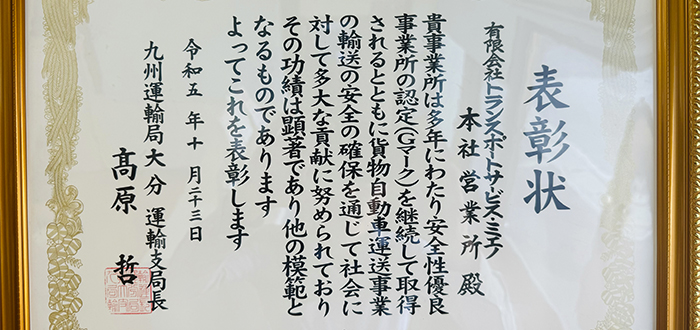 表彰状
有限会社トランスポートサービス・ミエノ
本社営業所 殿
貴事業所は多年にわたり安全性優良
事業所の認定(Gマーク)を継続して取得
されるとともに貨物自動車運送事業
の輸送の安全の確保を通じて社会に
対して多大な貢献に努められており
その功績は顕著であり他の模範と
なるものであります
よってこれを表彰します
令和五年十月二十三日
九州運輸局大分運輸支局長
髙原 哲